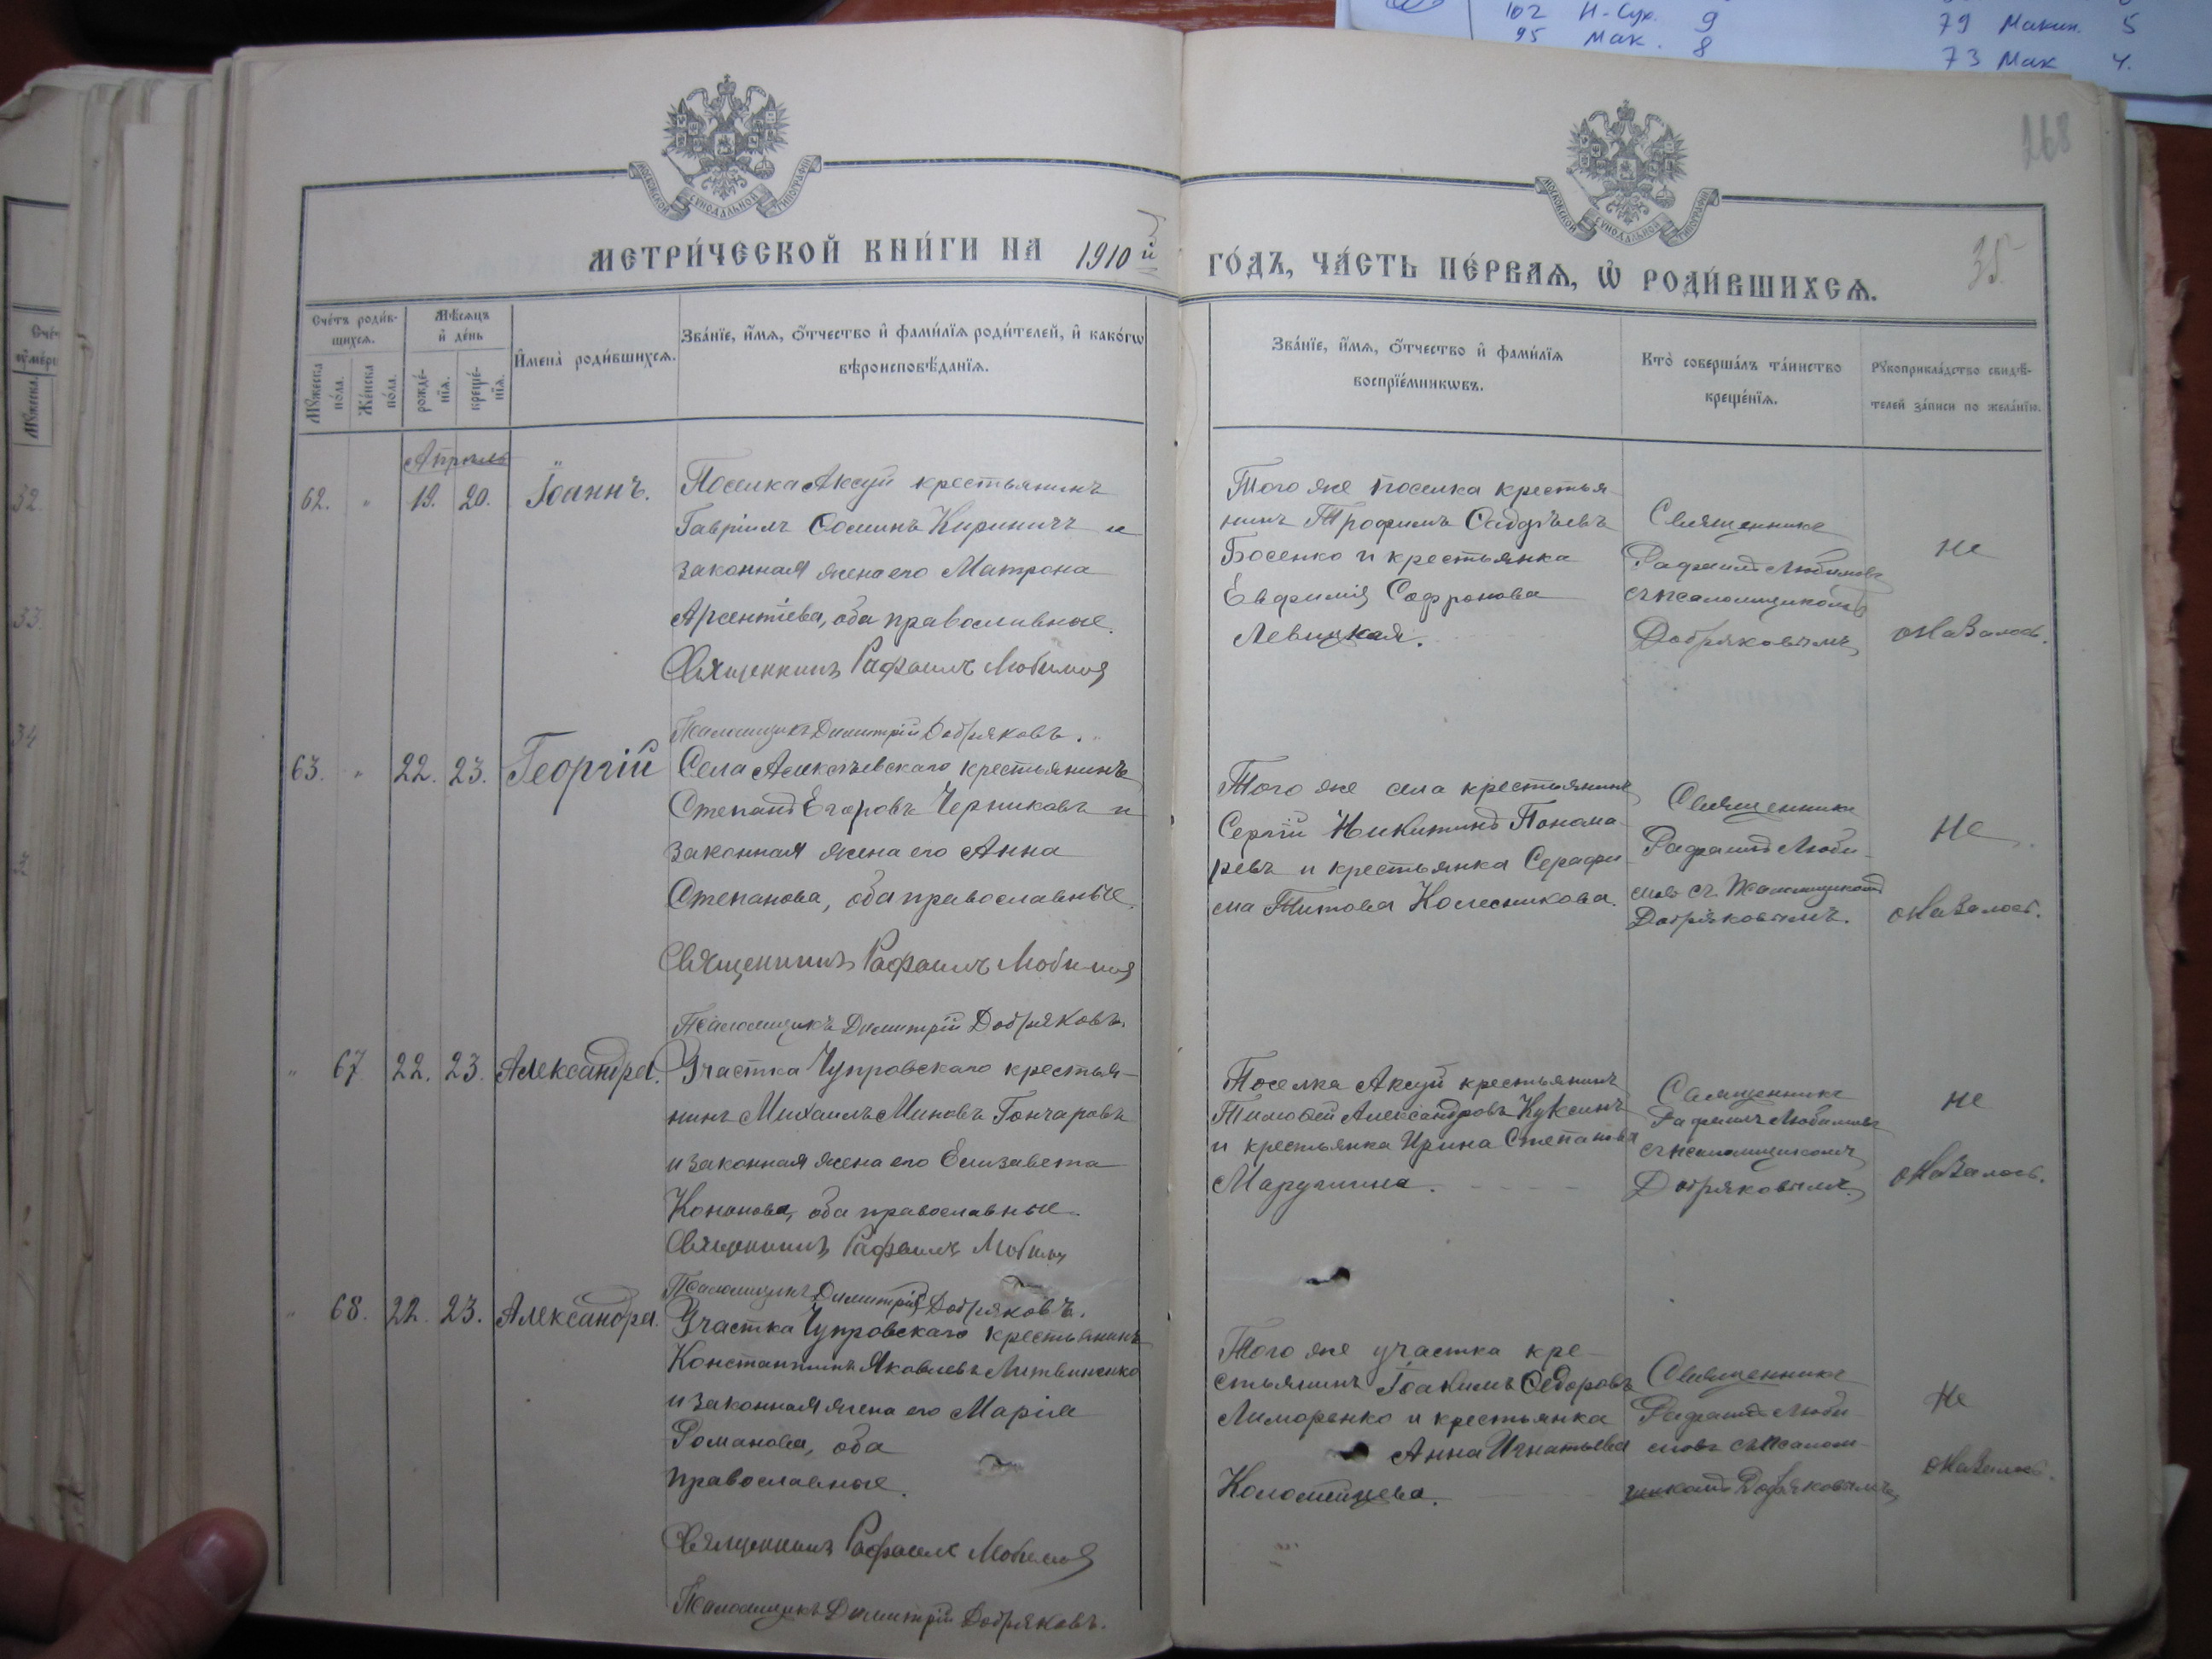 102 Н-Сух. 9
95 Мак. 8
79 Макин. 5
73 Мак 4.
268
35
МОСКОВСКОЙ СѴНОДАЛЬНОЙ ТИПОГРАФІИ
МОСКОВСКОЙ СѴНОДАЛЬНОЙ ТИПОГРАФІИ
МЕТРИ́ЧЕСКОЙ КНИ́ГИ НА 1910й
ГО́ДЪ, ЧА́СТЬ ПЕ́РВАѦ, Ѡ҆ РОДИ́ВШИХСѦ.
Сче́тъ роди́в-
щихсѧ.
Мѣ́сѧцъ
и҆ де́нь
Мꙋ́жеска по́ла.
Же́нска по́ла.
рожде́-нїѧ.
креще́-нїѧ.
И҆мена̀ роди́вшихсѧ.
Зва́нїе, и҆́мѧ, ѻ҆́тчество и҆ фами́лїѧ роди́телей, и҆ како́гѡ
вѣроисповѣ́данїѧ.
Зва́нїе, и҆́мѧ, ѻ҆́тчество и҆ фами́лїѧ
воспрїе́мникѡвъ.
Кто̀ соверша́лъ та́инство
креще́нїѧ.
Рꙋкоприкла́дство свидѣ́-
телей за́писи по жела́нїю.
Апрѣль
62. " 19. 20. Іоаннъ.
Поселка Аксуй крестьянинъ
Гавріилъ Ѳоминъ Киричъ и
законная жена его Матрона
Арсентіева, оба православные.
Священникъ Рафаилъ Любимов
Псаломщикъ Димитрій Добряковъ.
Того же поселка крестья-
нинъ Трофимъ
Босенко и крестьянка
Евфимія Софронова
Левицкая.
Священникъ
Рафаилъ Любимовъ
съ псаломщикомъ
Добряковымъ
Не
оказалось.
63. " 22. 23. Георгій
Села Алексѣевскаго крестьянинъ
Степанъ Егоровъ Черниковъ и
законная жена его Анна
Степанова, оба православные.
Священникъ Рафаилъ Любимов
Псаломщикъ Димитрій Добряковъ.
Того же села крестьянинъ
Сергій Никитинъ Понома-
ревъ и крестьянка Серафи-
ма Титова Колесникова.
Священникъ
Рафаилъ Люби-
мовъ съ псаломщикомъ
Добряковымъ.
Не
оказалось.
" 67 22. 23. Александра.
Участка Чупровскаго крестья-
нинъ Михаилъ Миновъ Гончаровъ
и законная жена его Елизавета
Кононова, оба православные.
Священникъ Рафаилъ Любимов
Псаломщикъ Димитрій Добряковъ.
Поселка Аксуй крестьянинъ
Тимоѳей Александровъ Куксинъ
и крестьянка Ирина Степанова
Священникъ
Рафаилъ Любимовъ
съ псаломщикомъ
Добряковымъ.
Не
оказалось.
" 68. 22. 23. Александра.
Участка Чупровскаго крестьянинъ
Константинъ Яковлевъ Литвиненко
и законная жена его Марія
Романова, оба
православные.
Священникъ Рафаилъ Любимов
Псаломщикъ Димитрій Добряковъ.
Того же участка кре-
стьянинъ Іоакимъ Ѳедоровъ
Лиморенко и крестьянка
Анна Игнатьева
Коломійцева.
Священникъ
Рафаилъ Люби-
мовъ съ псалом-
щикомъ Добряковымъ
Не
оказалось.